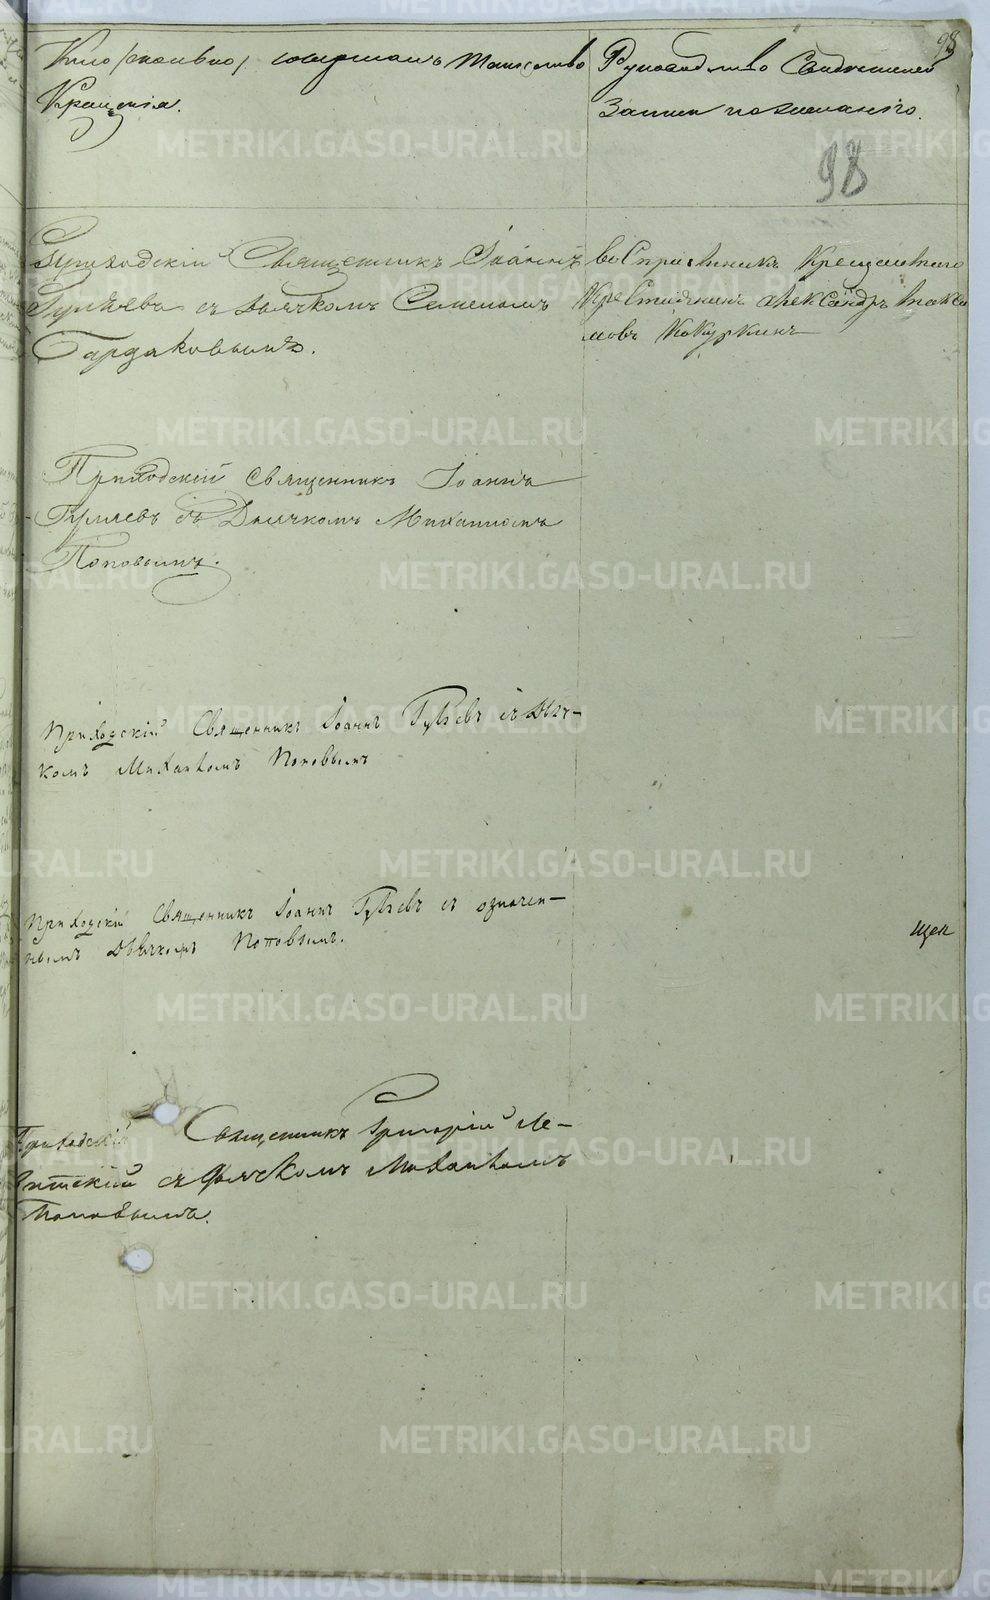 98
Кто /имянно/ совершалъ Таинство
Крещенія.
Рукоприкладство Свидѣтелей
Записи по желанію.
98
Приходскій Священникъ Іоаннъ
Гуляевъ съ Дьячкомъ
Бардаковымъ.
Воспріемникъ
Крестьянинъ Александръ Макси
мовъ Кокуркинъ
Приходскій священникъ Іоаннъ
Гуляевъ съ Дьячкомъ Михаиломъ
Поповымъ.
Приходскій Священникъ Іоаннъ Гуляевъ съ Дьяч-
комъ Михаиломъ Поповымъ
Приходскій Священникъ Іоаннъ Гуляевъ съ означен-
нымъ Дьячкомъ Поповымъ.
щен
Приходскій Священникъ Григорій Ле-
витскій съ Дьячкомъ Михаиломъ
Поповымъ.
METRIKI.GASO-URAL.RU